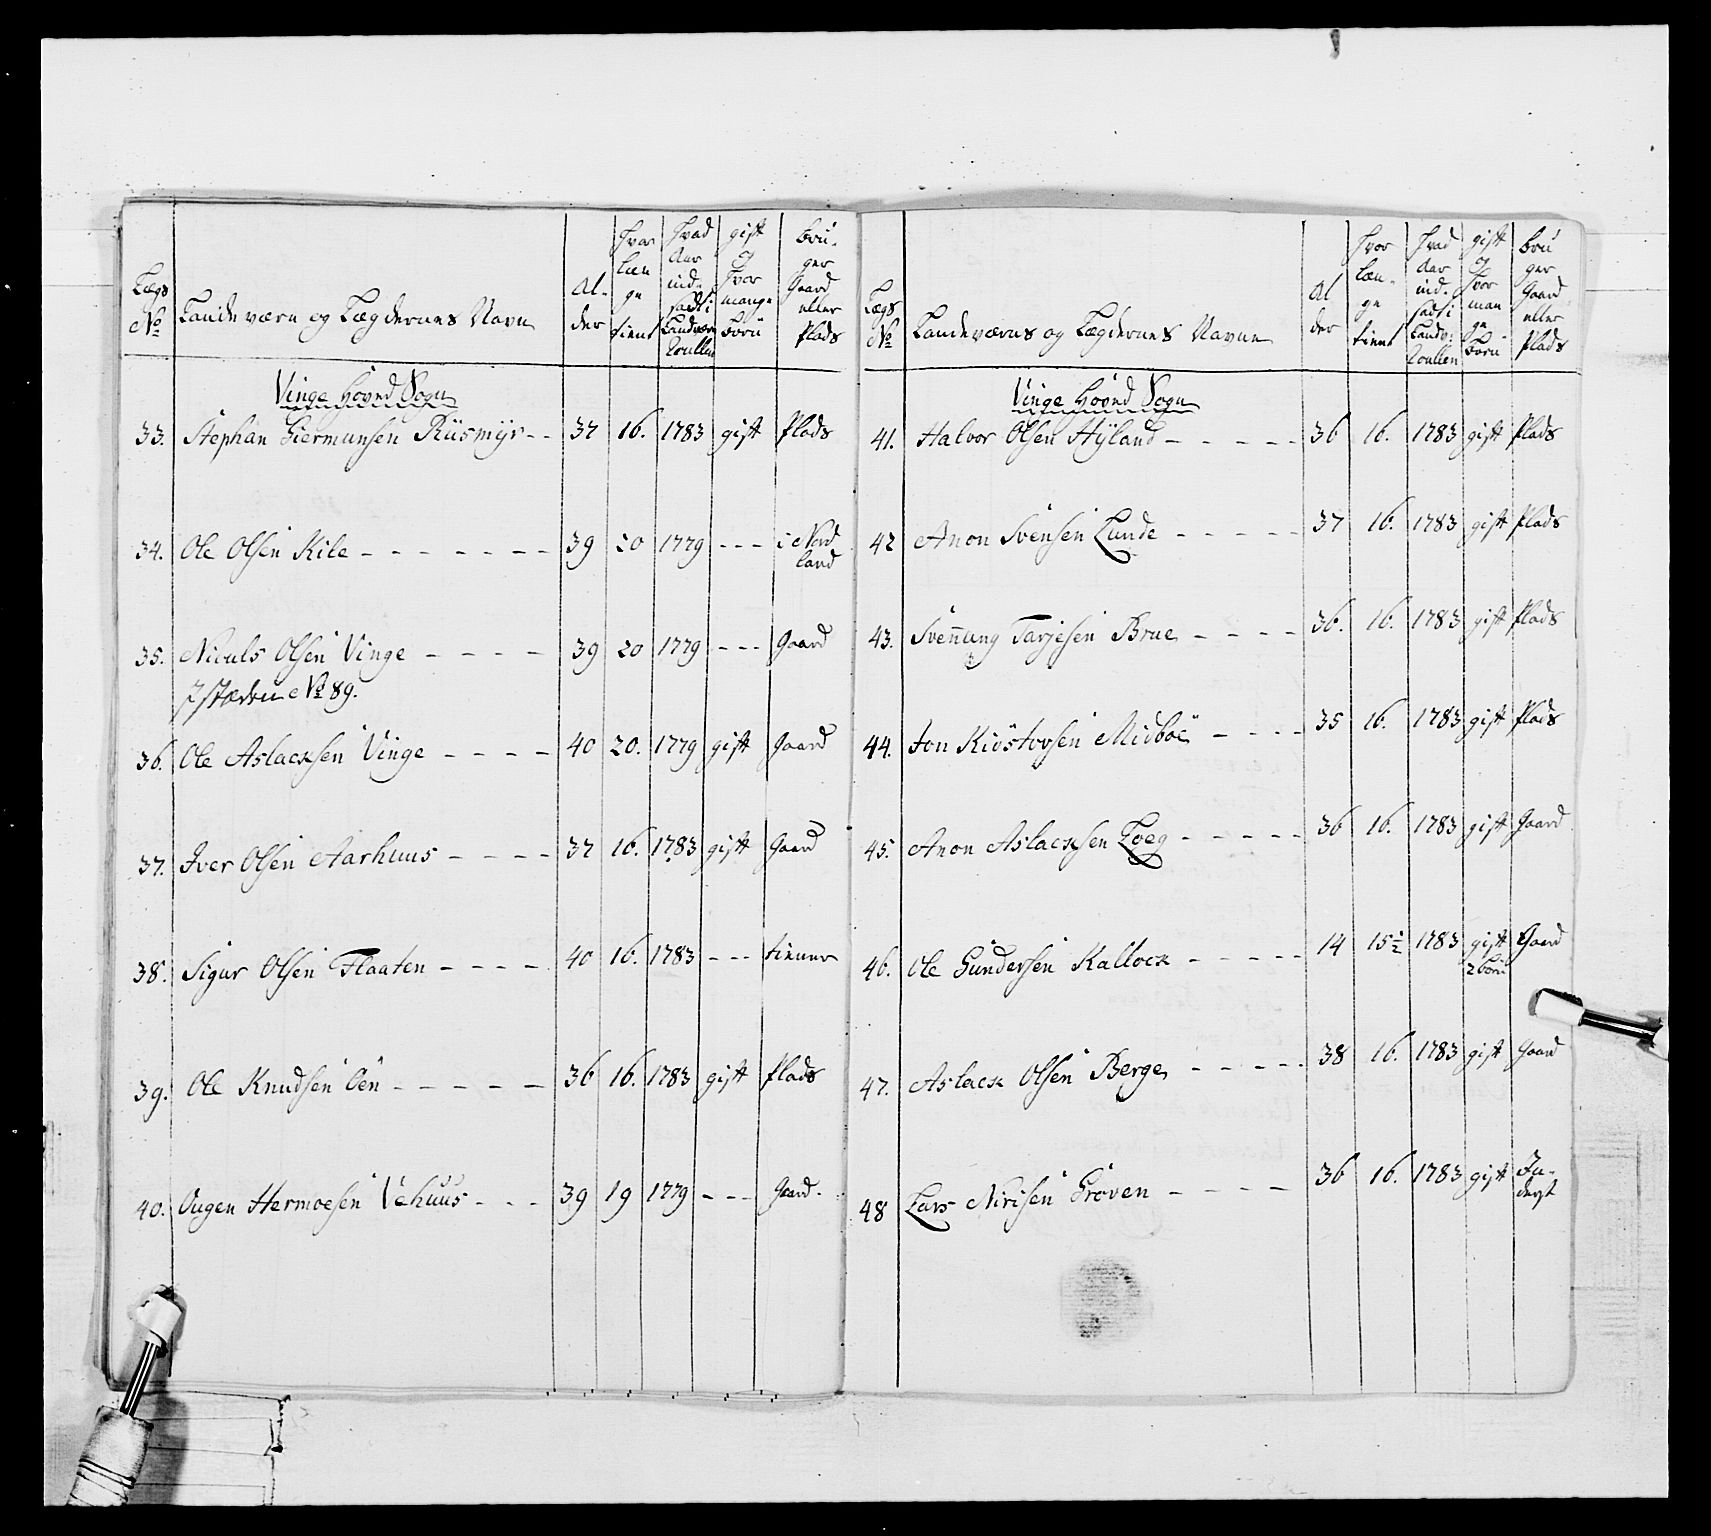 Lægs No
Landeværn og Lægdernes Navn
Al- der
Hvor læn ge tient
Hvad Aar ind- sadt i Landværn Roullen
gift og Hvor mange Börn
bru- ger Gaard eller Plads
Vinge Hoved Sogn
33. Stephan Giermunsen Rüsmÿr -- 37 16. 1783 gift Plads
34. Ole Olsen Kile - - - - - - - 39 20 1779 --- i Nord land
35. Niculs Olsen Vinge - - - - 39 20 1779 --- Gaard
Istæden No 89.
36. Ole Aslacksen Vinge - - - - 40 20. 1779 gift Gaard
37. Iver Olsen Aarhuus - - - - 37 16. 1783 gift Gaard
38. Sigur Olsen Flaaten - - - - 40 16. 1783 --- tiener
39. Ole Knudsen Öen - - - - - 36 16. 1783 gift Plads
40. Ougen Hermoesen Vehuus - - - 39 19 1779 --- Gaard.
Lægs No
Landeværns og Lægdernes Navne
Al der
Hvor læn- ge tient
Hvad Aar ind- sadt i Landv: Roullen
gift og Hvor man ge Börn
bru ger Gaard eller Plads
Vinge Hoved Sogn
41. Halvor Olsen Hÿland - - - - - 36 16. 1783 gift Plads
42 Anon Svensen Lunde - - - - - 37 16. 1783 gift Plads
43. Svennung Tarjesen Brue - - - - 36. 16. 1783 gift Plads
44. Jon Kiöstovsen Midböe - - - - 35 16. 1783 gift Plads
45. Anon Aslacksen Loeg - - - - - 36 16. 1783 gift Gaard
46. Ole Gundersen Kallock - - - - - 14 15½ 1783 gift 2 börn Gaard
47. Aslack Olsen Berge - - - - - 38 16. 1783 gift Gaard
48 Lars Nirisen Gröven - - - - 36 16. 1783 gift In- derst